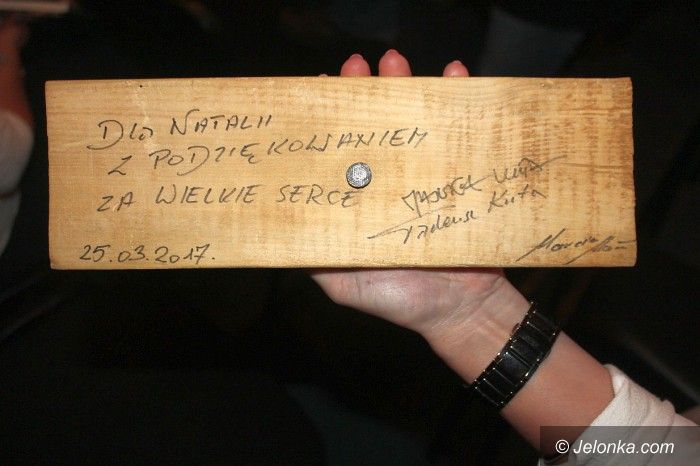 DLA NATALII
Z PODZIĘKOWANIEM
ZA WIELKIE SERCE
Tadeusz Kuta
25.03.2017.
© Jelonka.com